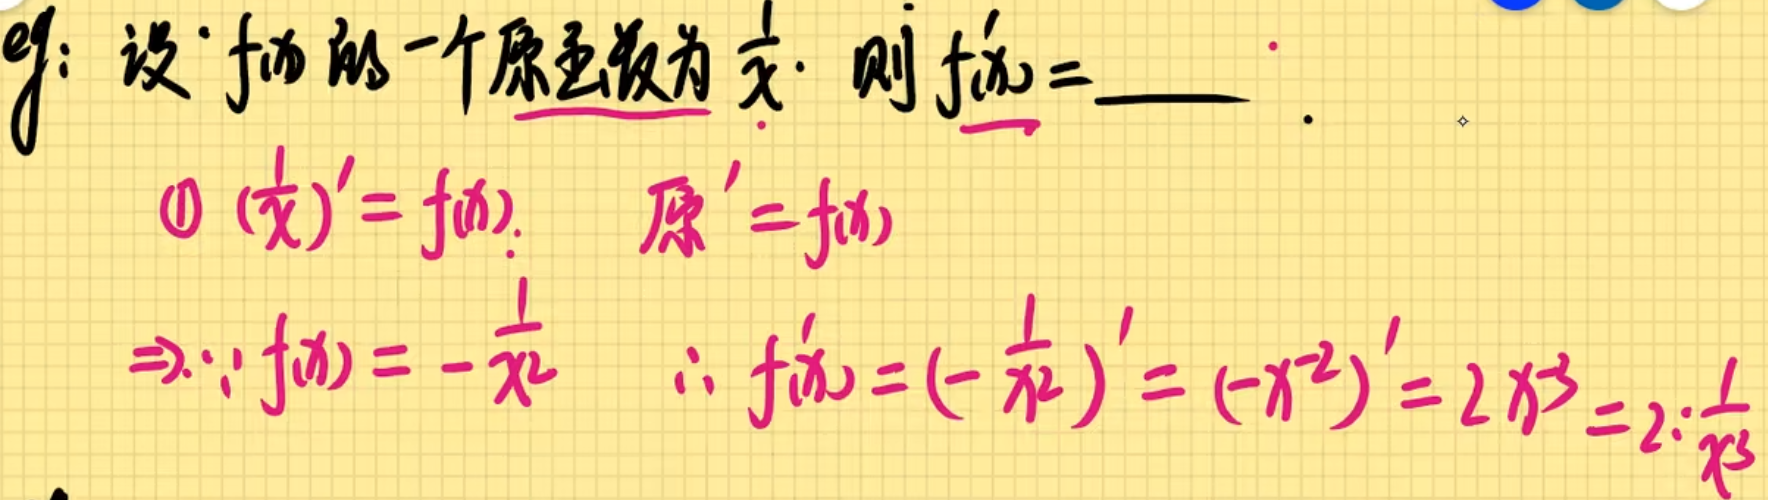 eg: 设 f(x) 的一个原函数为 1/x. 则 f'(x) = ____.
① (1/x)' = f(x). 原' = f(x)
⇒ ∵ f(x) = -1/x² ∴ f'(x) = (-1/x²)' = (-x⁻²)' = 2x⁻³ = 2·1/x³